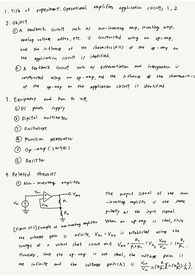 1. Title of experiment: Operational amplifier application circuits 1, 2
2. Object
① A feedback circuit such as non-inverting amp, inverting amp,
analog voltage adder, etc. is constructed using an op-amp,
and the influence of the characteristics of the op-amp on
the application circuit is identified.
② A feedback circuit such as differentiation and integration is
constructed using an op-amp, and the influence of the characteristics
of the op-amp on the application circuit is identified.
3. Equipment and how to use
① DC power supply
② Digital multimeter
③ Oscilloscope
④ Function generator
⑤ Op-amp
⑥ Resistor
4. Related theories
① Non-inverting amplifier
The output signal of the non
-inverting amplifier is the same
polarity as the input signal.
When an op-amp is ideal, since
the voltage gain is infinite,
concept of a virtual short circuit and
However, since the op-amp is not ideal, the voltage gain is
not infinite and the voltage gain